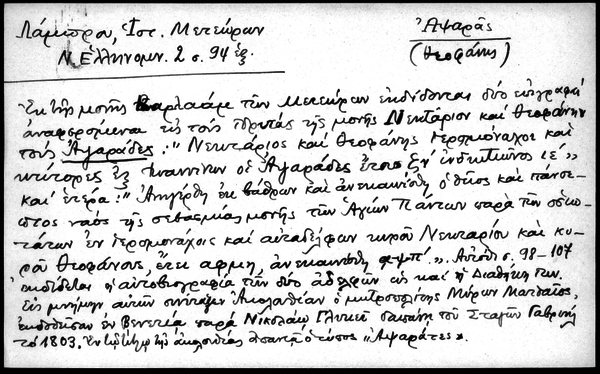 Λάμπρου, Ἱστ. Μετεώρων
Ν. Ἑλληνομν. 2 σ. 94 ἑξ.
Ἀψαρᾶς
(Θεοφάνης)
Ἐκ τῆς μονῆς Βαρλαὰμ τῶν Μετεώρων ἐκδίδονται δύο ἐπιγραφαὶ
ἀναφερόμεναι εἰς τοὺς ἱδρυτὰς τῆς μονῆς Νεκτάριον καὶ Θεοφάνην
τοὺς Ἀψαράδες: "Νεκτάριος καὶ Θεοφάνης ἱερομόναχοι καὶ
κτίτορες ἐξ Ἰωαννίνων οἱ Ἀψαράδες ἔτους ἰνδικτιῶνος ιε΄"
καὶ ἑτέρα: "Ἀνηγέρθη ἐκ βάθρων καὶ ἀνεκαινίσθη ὁ θεῖος καὶ πάνσε-
πτος ναὸς τῆς σεβασμίας μονῆς τῶν Ἁγίων Πάντων παρὰ τῶν ὁσιω-
τάτων ἐν ἱερομονάχοις καὶ αὐταδέλφων κυροῦ Νεκταρίου καὶ κυ-
ροῦ Θεοφάνους, ἔτει αφμη, ἀνεκαινίσθη αψπ". Αὐτόθι σ. 98-107
ἐκδίδεται ἡ αὐτοβιογραφία τῶν δύο ἀδελφῶν ὡς καὶ ἡ Διαθήκη των.
Εἰς μνήμην αὐτῶν συνέταξεν Ἀκολουθίαν ὁ μητροπολίτης Μύρων Ματθαῖος,
ἐκδοθεῖσαν ἐν Βενετίᾳ παρὰ Νικολάῳ Γλυκεῖ δαπάνῃ τοῦ Σταγῶν Γαβριὴλ
τὸ 1803. Ἐν τῷ τίτλῳ τῆς ἀκολουθίας ἀπαντᾷ ὁ τύπος "Ἀψαράτες".